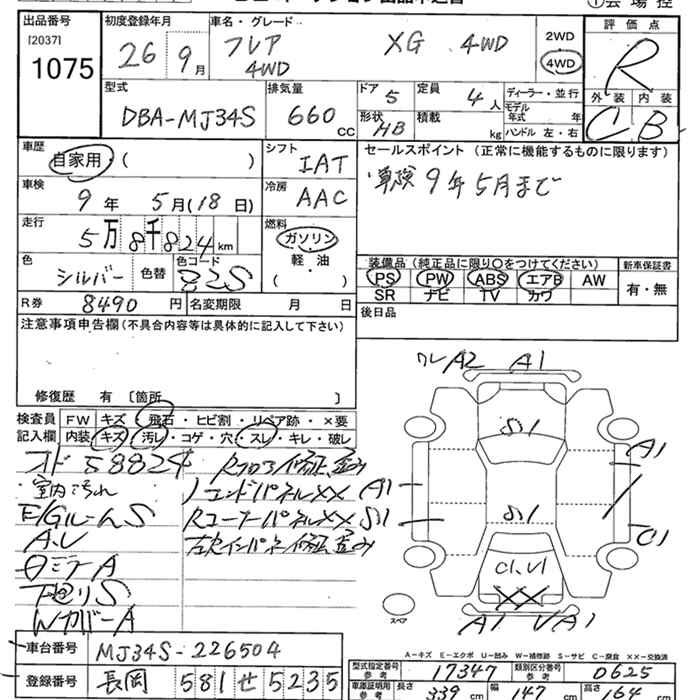 出品番号 初度登録年月 車名・グレード 会場控
[2037] 1075
26年 9月
フレア XG 4WD
4WD
2WD
4WD
評価点
R
外装 内装
C B
型式
DBA-MJ34S
排気量
660 CC
ドア 5
定員 4人
形状 HB
積載 kg
ディーラー・並行
モデル年式 年
ハンドル 左・右
車歴
自家用・( )
シフト
IAT
セールスポイント (正常に機能するものに限ります)
車検9年5月まで
車検
9年 5月(18日)
冷房
AAC
走行
5万8千824km
燃料
ガソリン
軽・油
( )
色
シルバー
色替
色コード
Z2S
装備品(純正品に限り○をつけてください)
新車保証書
PS PW ABS エアB AW
SR ナビ TV カワ
有・無
R券 8490円
名変期限 月 日
後日品
注意事項申告欄(不具合内容等は具体的に記入して下さい)
修復歴 有 〔箇所 〕
検査員記入欄
FW キズ・飛石・ヒビ割・リペア跡・×要
内装 キズ・汚レ・コゲ・穴・スレ・キレ・破レ
オド58824
室内汚れ
E/GルームS
下廻りS
WカバーA
エンドパネルXX
RコーナーパネルXX
A2 A1
S1
A1
A1
S1
S1
C1
C1,U1
XX
A1
スペア
A-キズ E-エクボ U-凹み W-補修跡 S-サビ C-腐食 XX-交換済
車台番号 MJ34S-226504
登録番号 長岡 581 せ 5235
型式指定番号 参考 17347
類別区分番号 参考 0625
車庫証明用 参考 長さ 339cm 幅 147cm 高さ 164cm